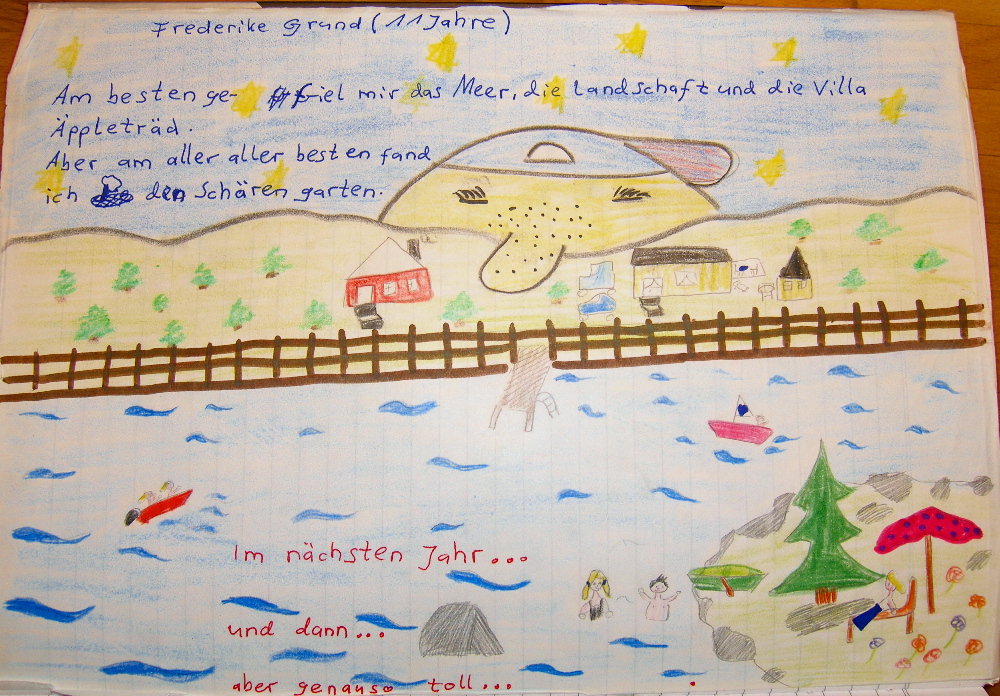 Frederike Grund (11 Jahre)
Am besten ge- fiel mir das Meer, die Landschaft und die Villa
Äppleträd.
Aber am aller aller besten fand
ich den Schären garten.
Im nächsten Jahr...
und dann...
aber genauso toll...